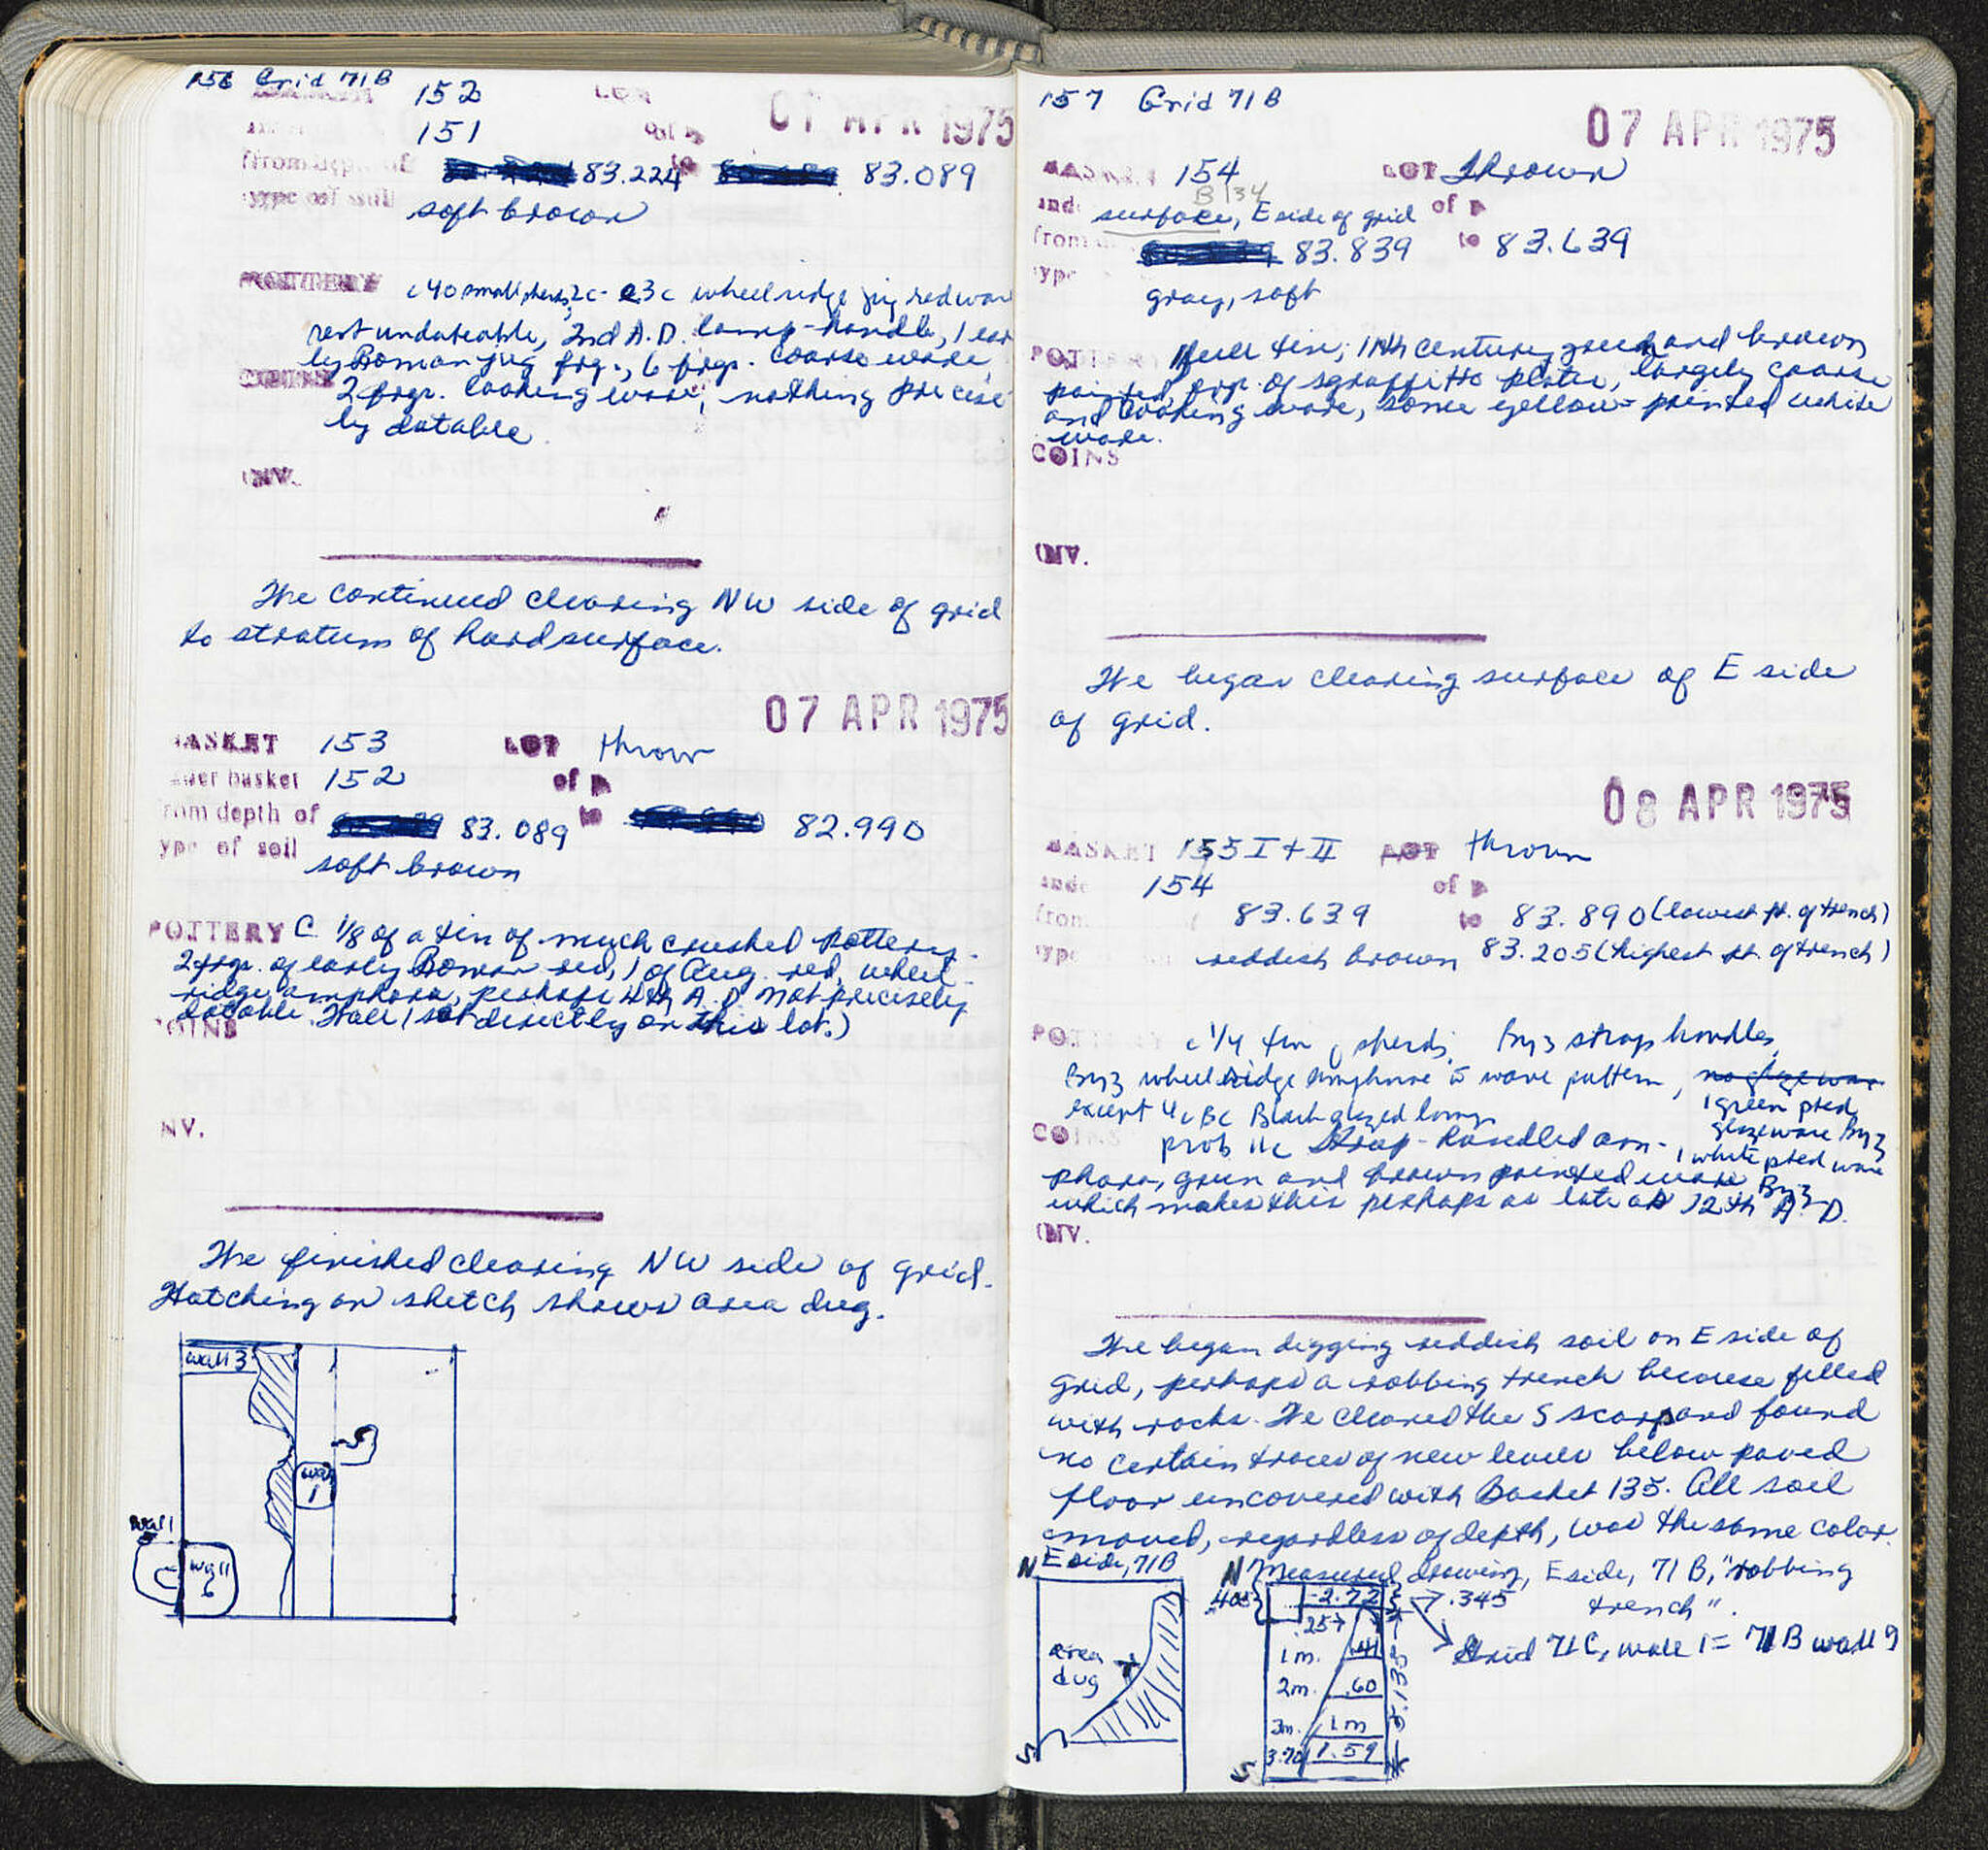 156 Grid 71B
152 LOT
07 APR 1975
151 of
from depth of 83.224 to 83.089
type of soil
soft brown
POTTERY c 40 small sherds, 2c - 3c wheelridge jug red ware
rest undateable, 2nd A.D. lamp-handle, 1 ear
ly Roman jug frg., 6 frgs. coarse ware,
COINS
2 frgs. cooking ware, nothing precise
ly datable.
INV.
We continued clearing NW side of grid
to stratum of hard surface.
07 APR 1975
BASKET 153 LOT thrown
under basket 152 of
from depth of 83.089 to 82.990
type of soil
soft brown
POTTERY C. 1/8 of a tin of much crushed pottery.
2 frgs. of early Roman red, 1 of Aug. red, wheel-
ridge amphora, perhaps 4th A.D. Not precisely
datable.
COINS
NV.
We finished clearing NW side of grid.
Hatching on sketch shows area dug.
wall 3
wall
1
wall
wall
6
157 Grid 71B
07 APR 1975
BASKET 154 LOT Thrown
B 134
surface, E side of grid of
from 83.839 to 83.639
type
gray, soft
POTTERY 1 full tin; 11th century green and brown
painted, frgs. of sgraffitto plates, largely coarse
and cooking ware, some yellow-painted white
ware.
COINS
INV.
We began clearing surface of E side
of grid.
08 APR 1975
BASKET 155 I + II LOT thrown
154 of
from 83.639 to 83.890 (lowest pt. of trench)
type reddish brown 83.205 (highest pt. of trench)
c 1/4 tin of sherds, Byz strap handles,
Byz wheelridge amphorae c̄ wave pattern, no glaze ware
except 4c BC Black glazed lamp
1 green pted
glazeware Byz
COINS
prob 11c Strap-handled am-
1 white pted ware
Byz
phora, green and brown painted ware
which makes this perhaps as late as 12th A.D.
INV.
We began digging reddish soil on E side of
grid, perhaps a robbing trench because filled
with rocks. We cleared the S scarp and found
no certain traces of new levels below paved
floor uncovered with Basket 135. All soil
moved, regardless of depth, was the same color.
N E side, 71B
area
dug
S
N Measured drawing, E side, 71 B, "robbing
trench".
.405
2.72
.345
.25
1 m.
2m. .60
3m. 1m
3.70 1.59
S
Grid 71C, wall 1 = 71B wall 9